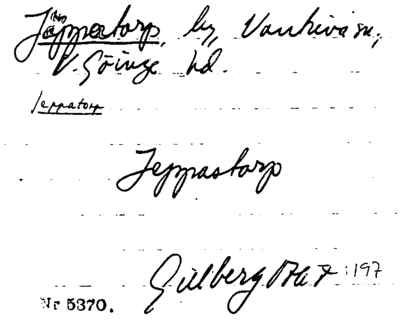 Jeppatorp, by, Vankiva sn.,
V. Göinge hd.
Jeppatorp
Jeppastorp
Gillberg 197
Nr 5370.